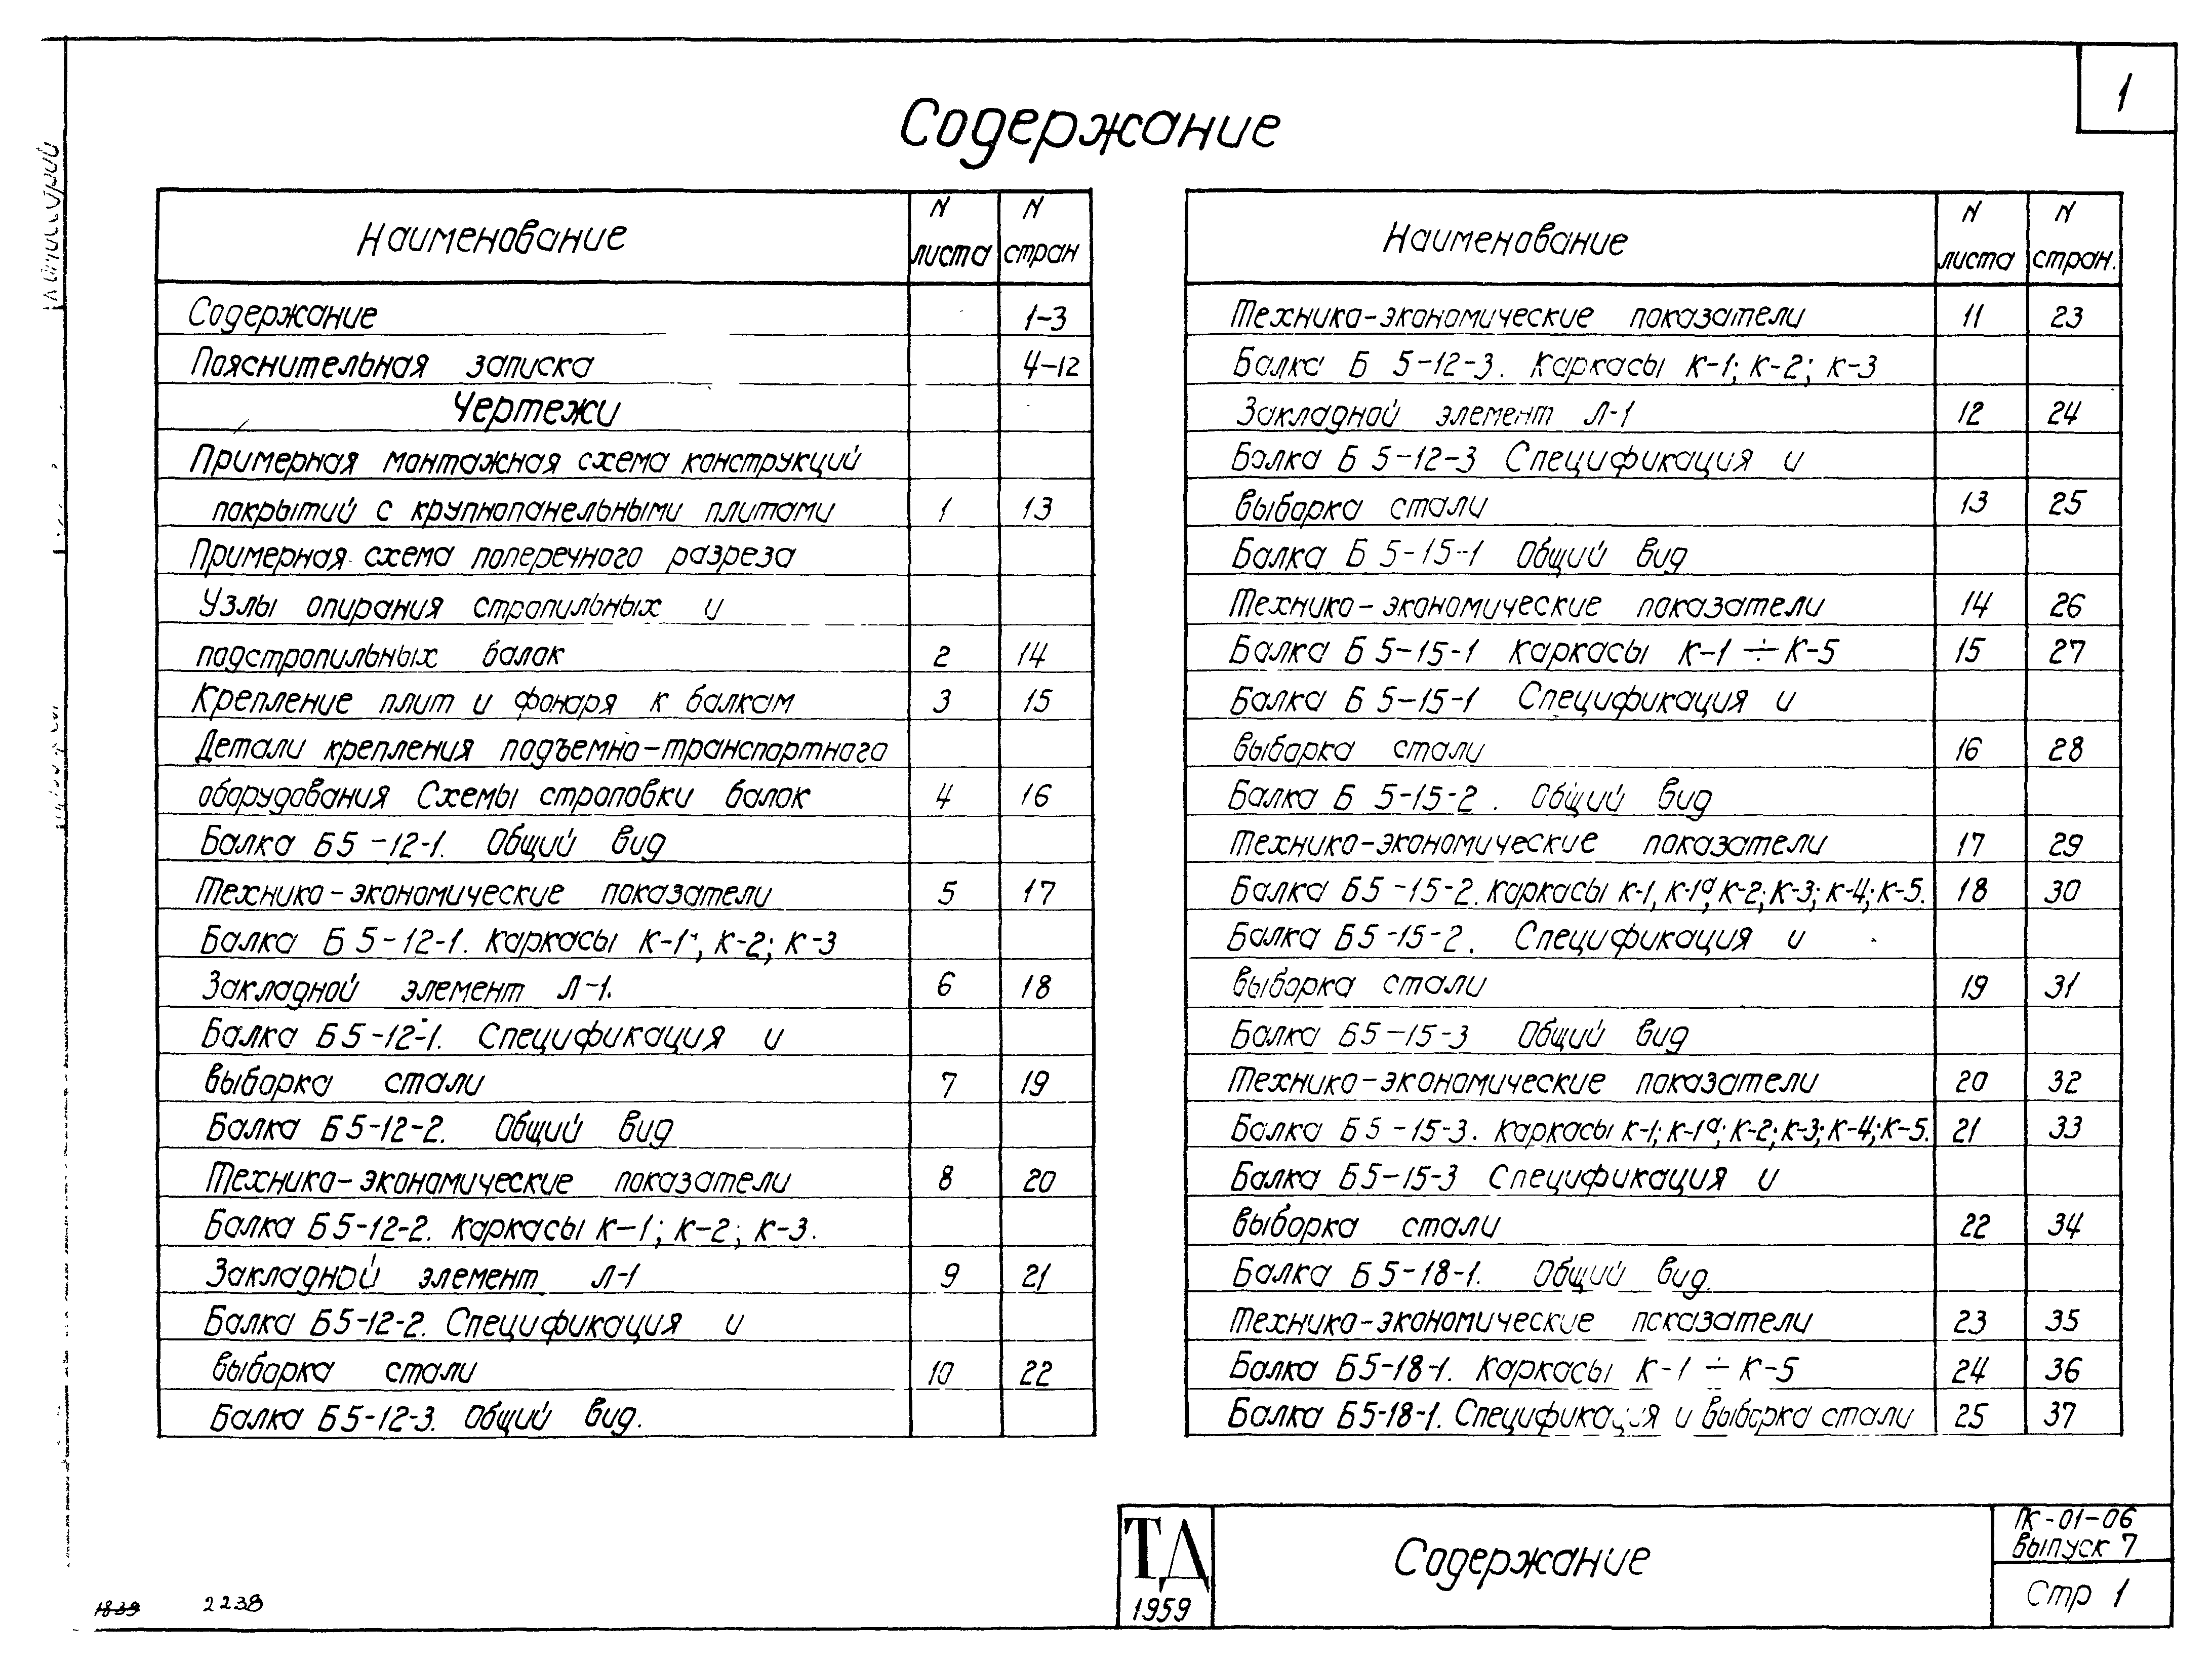 1
Содержание
Наименование N листа N стран
Содержание 1-3
Пояснительная записка 4-12
Чертежи
Примерная монтажная схема конструкций
покрытий с крупнопанельными плитами 1 13
Примерная схема поперечного разреза
Узлы опирания стропильных и
подстропильных балок 2 14
Крепление плит и фонаря к балкам 3 15
Детали крепления подъемно-транспортного
оборудования Схемы строповки балок 4 16
Балка Б5-12-1. Общий вид
Технико-экономические показатели 5 17
Балка Б5-12-1. Каркасы К-1; К-2; К-3
Закладной элемент Л-1. 6 18
Балка Б5-12-1. Спецификация и
выборка стали 7 19
Балка Б5-12-2. Общий вид
Технико-экономические показатели 8 20
Балка Б5-12-2. Каркасы К-1; К-2; К-3.
Закладной элемент Л-1 9 21
Балка Б5-12-2. Спецификация и
выборка стали 10 22
Балка Б5-12-3. Общий вид.
Наименование N листа N стран.
Технико-экономические показатели 11 23
Балка Б 5-12-3. Каркасы К-1; К-2; К-3
Закладной элемент Л-1 12 24
Балка Б 5-12-3 Спецификация и
выборка стали 13 25
Балка Б 5-15-1 Общий вид
Технико-экономические показатели 14 26
Балка Б 5-15-1 Каркасы К-1 ÷ К-5 15 27
Балка Б 5-15-1 Спецификация и
выборка стали 16 28
Балка Б 5-15-2. Общий вид
Технико-экономические показатели 17 29
Балка Б5-15-2. Каркасы К-1, К-1а, К-2; К-3; К-4; К-5. 18 30
Балка Б5-15-2. Спецификация и
выборка стали 19 31
Балка Б5-15-3 Общий вид
Технико-экономические показатели 20 32
Балка Б5-15-3. Каркасы К-1; К-1а; К-2; К-3; К-4; К-5. 21 33
Балка Б5-15-3 Спецификация и
выборка стали 22 34
Балка Б5-18-1. Общий вид.
Технико-экономические показатели 23 35
Балка Б5-18-1. Каркасы К-1 ÷ К-5 24 36
Балка Б5-18-1. Спецификация и выборка стали 25 37
ТД
1959
Содержание
ПК-01-06
выпуск 7
Стр 1
1839 2238